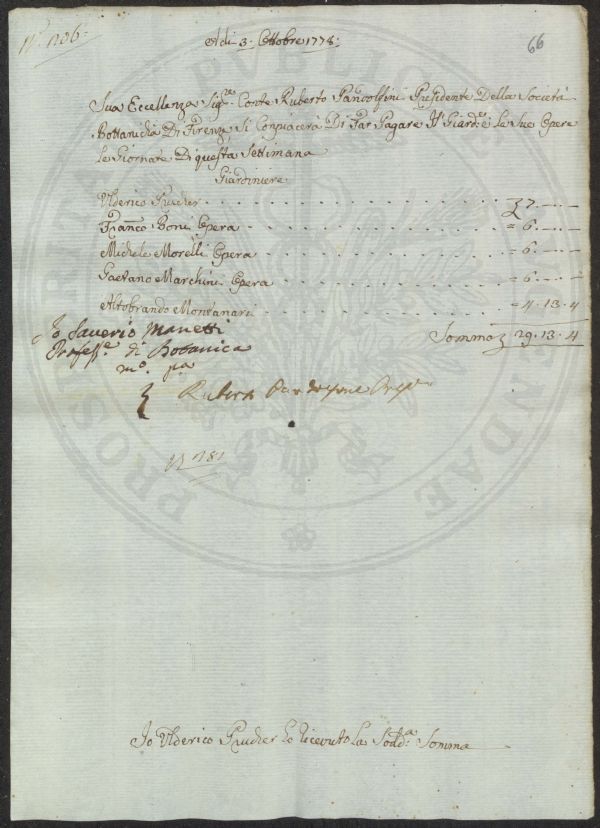 N.º 1106.
66
Adi 3. Ottobre 1778:
Sua Eccellenza Sig.re Conte Ruberto Pandolfini Presidente Della Società
Bottanicha Di Firenze Si Conpiacerà Di Far Pagare Il Giard.e e Le Sue Opere
Le Giornate Di questa Settimana
Giardiniere
Ulderico Prucher 7.
Franco Boni Opera = 6.
Michele Morelli Opera = 6.
Gaetano Marchini Opera = 6.
Altobrando Montanari = 4. 13. 4
Io Saverio Manetti
Somma 29. 13. 4
Profess.e di Botanica
m.º p.a
Ruberto Pandolfini
N 781
Io Ulderico Prucher ho Ricevuto La Sodd.a Somma
PUBLICAE
PROSPERITATI
AUGENDAE